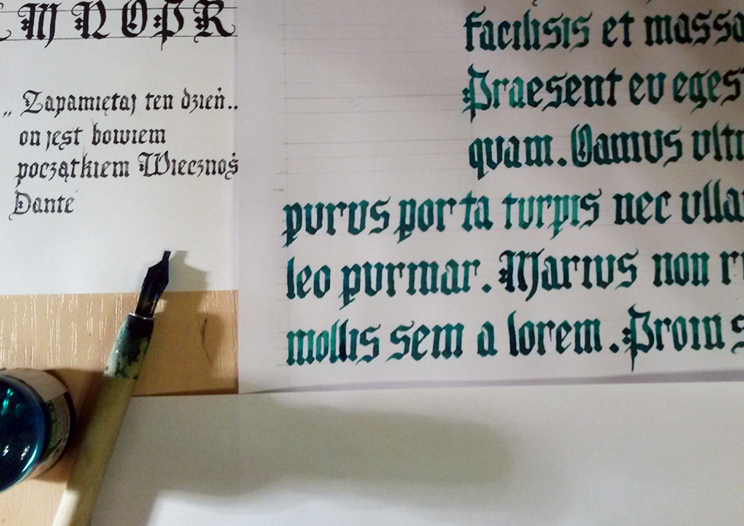 M N O P R
„Zapamiętaj ten dzień..
on jest bowiem
początkiem Wiecznoś
Dante
facilisis et massa
Praesent eu eges
quam. Vamus ultr
purus porta turpis nec ulla
leo purmar. Marius non
mollis sem a lorem. Proin s